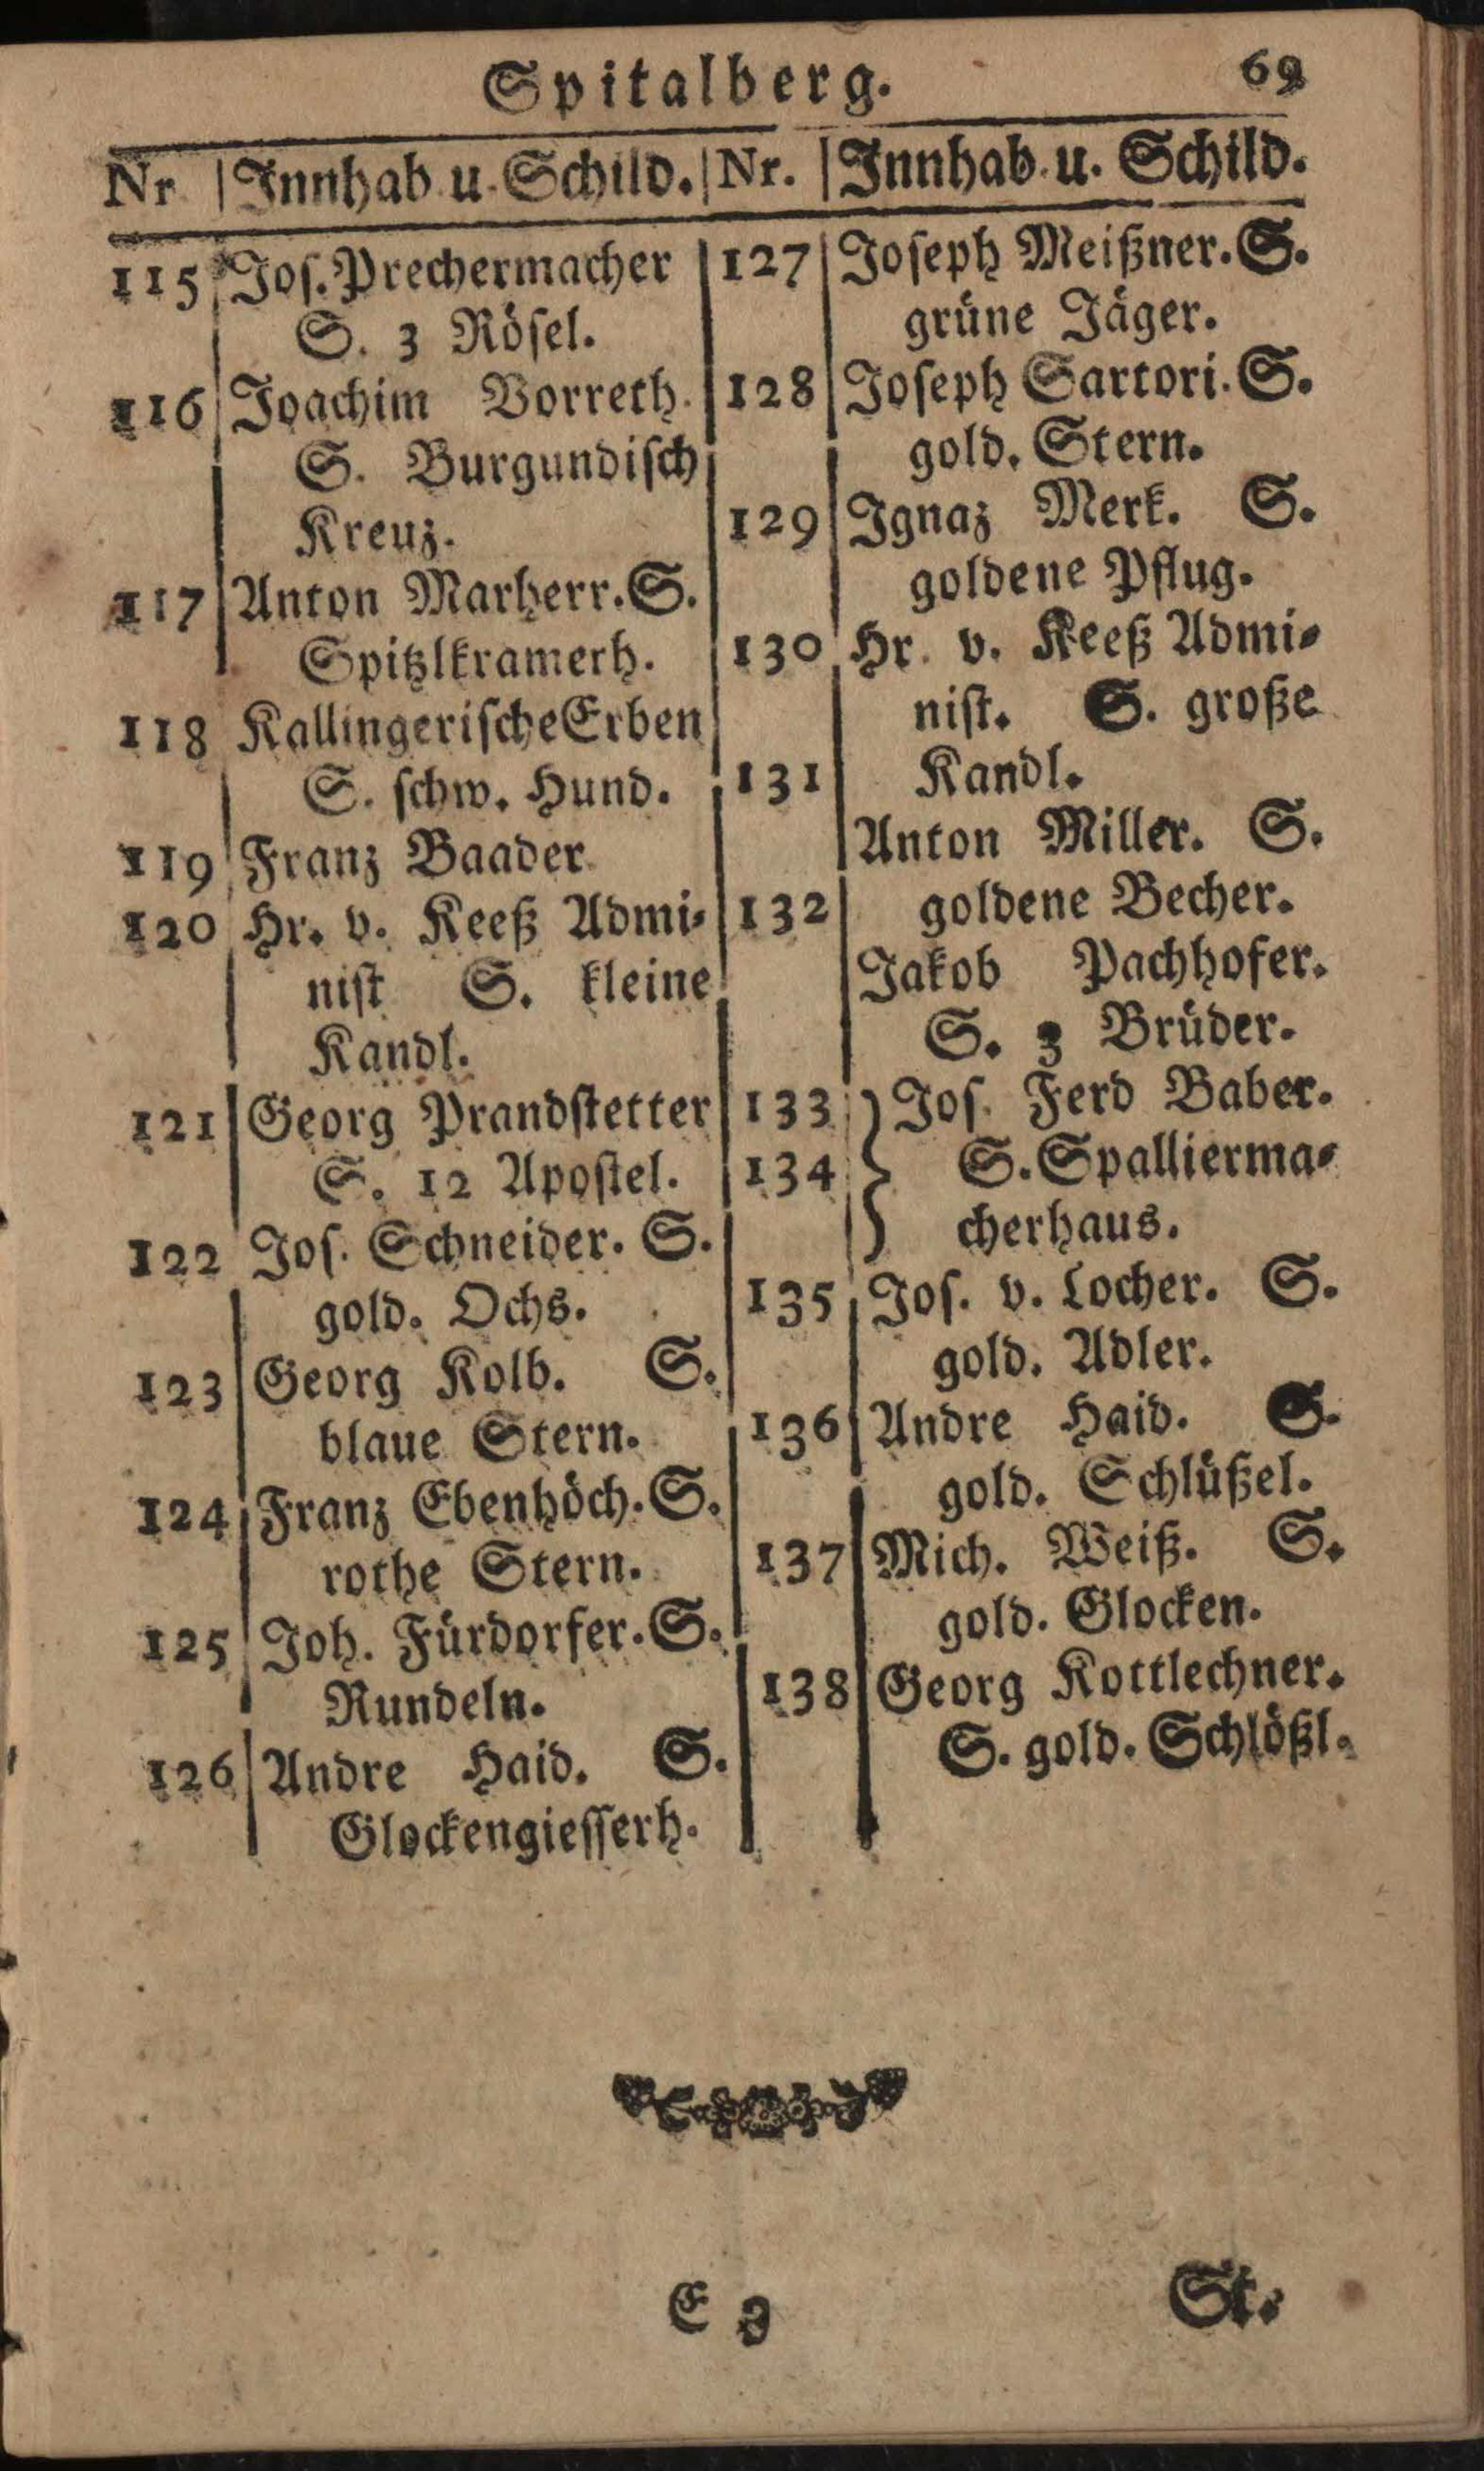 Spitalberg. 69
Nr | Innhab. u. Schild. | Nr. | Innhab. u. Schild.
115 Jos. Prechermacher
S. 3 Rösel.
116 Joachim Vorreth.
S. Burgundisch
Kreuz.
117 Anton Marherr. S.
Spitzlkramerh.
118 Kallingerische Erben
S. schw. Hund.
119 Franz Baader
120 Hr. v. Keeß Admi-
nist S. kleine
Kandl.
121 Georg Prandstetter
S. 12 Apostel.
122 Jos. Schneider. S.
gold. Ochs.
123 Georg Kolb. S.
blaue Stern.
124 Franz Ebenhöch. S.
rothe Stern.
125 Joh. Fürdorfer. S.
Rundeln.
126 Andre Haid. S.
Glockengiesserh.
127 Joseph Meißner. S.
grüne Jäger.
128 Joseph Sartori. S.
gold. Stern.
129 Ignaz Merk. S.
goldene Pflug.
130 Hr. v. Keeß Admi-
nist. S. große
131 Kandl.
Anton Miller. S.
132 goldene Becher.
Jakob Pachhofer.
S. 3 Brüder.
133 } Jos. Ferd Baber.
134 } S. Spallierma-
cherhaus.
135 Jos. v. Locher. S.
gold. Adler.
136 Andre Haid. S.
gold. Schlüßel.
137 Mich. Weiß. S.
gold. Glocken.
138 Georg Kottlechner.
S. gold. Schlößl.
E 3 St.